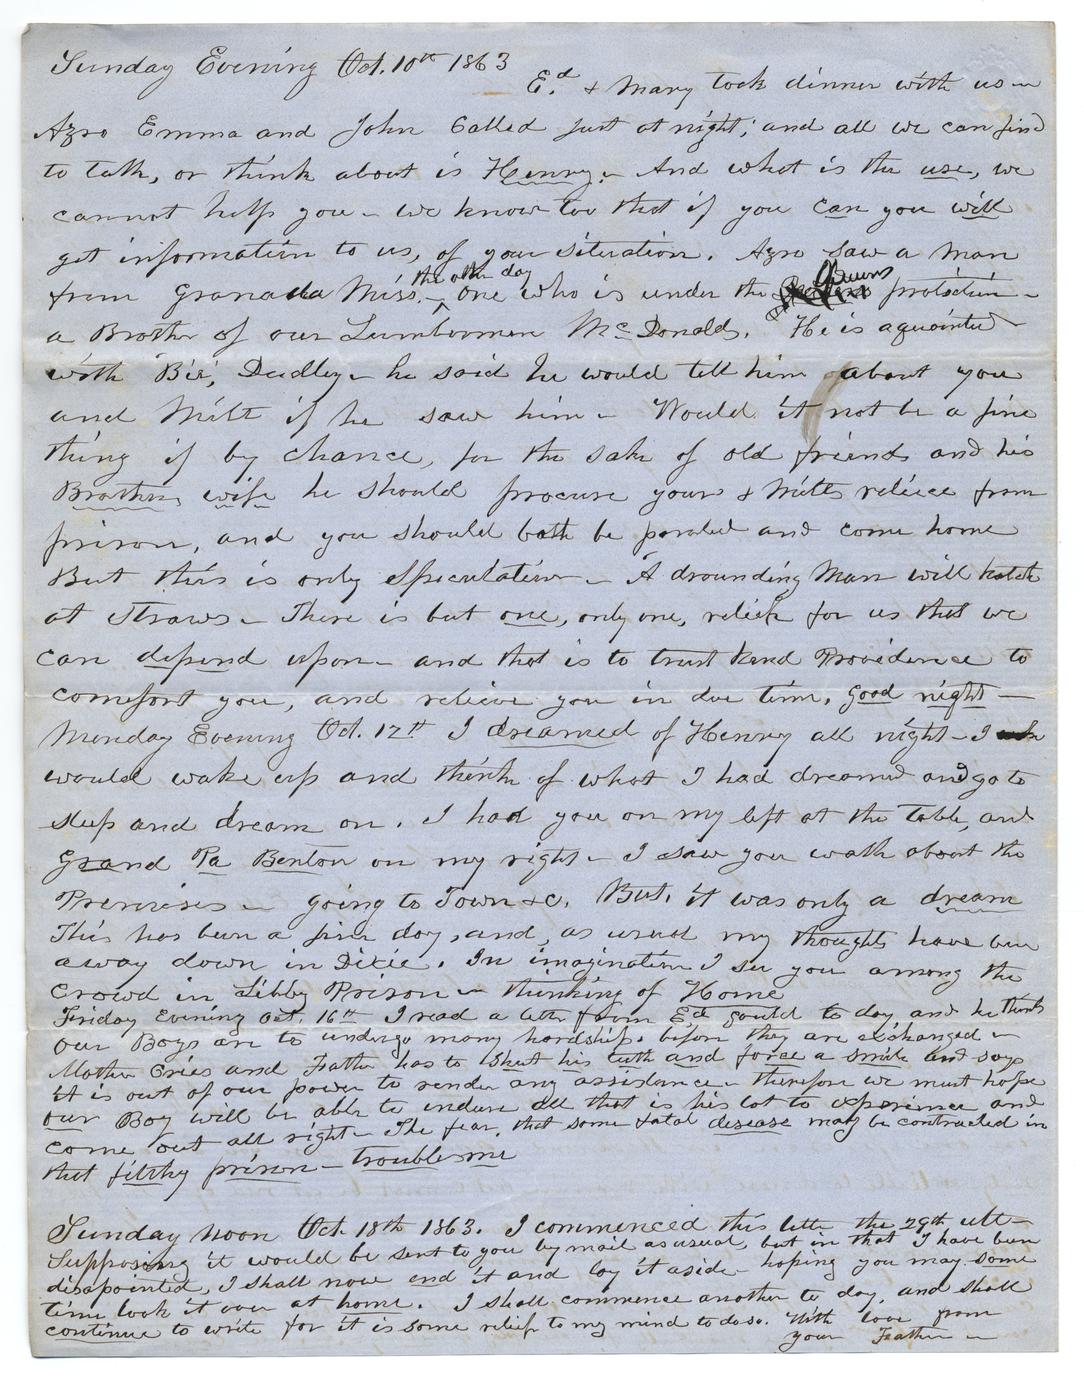 Sunday Evening Oct. 10th 1863
Ed. & Mary took dinner with us -
Azro Emma and John Called just at night; and all we can find
to talk, or think about is Henry. - And what is the use, we
cannot help you - we know too that if you can you will
get information to us, of your situation. Azro saw a Man
from Granada Miss, - the other day one who is under the Guvms protection -
a Brother of our Lumberman McDonald. He is aquainted
with Bis; Dudley - he said he would tell him about you
and Milt if he saw him - Would it not be a fine
thing if by chance, for the sake of old friends and his
Brothers wife he should procure your & Milts reliece from
prison, and you should both be paroled and come home
But this is only Speculation - A drounding Man will katch
at Straws - There is but one, only one, relief for us that we
can depend upon - and that is to trust kind Providence to
comefort you, and relieve you in due time. Good night -
Monday Evening Oct. 12th I dreamed of Henry all night - I
would wake up and think of what I had dreamed and go to
sleep and dream on. I had you on my left at the table, and
Grand Pa Benton on my right - I saw you walk about the
Premises - going to Town &c. But, it was only a dream
This has been a fine day, and, as usual my thoughts have been
away down in Dixie. In imagination I see you among the
Crowd in Libby Prison - thinking of Home
Friday Evening Oct. 16th I read a letter from Ed Gould to day, and he thinks
our Boys are to undergo many hardships before they are exchanged -
Mother Cries and Father has to Shut his teeth and force a smile and says
it is out of our power to render any assistance - therefore we must hope
our Boy will be able to endure all that is his lot to experience and
come out all right - The fear, that some fatal desease may be contracted in
that filthy prison - troubles me
Sunday noon Oct. 18th 1863. I commenced this letter the 29th ult -
Supposing it would be sent to you by mail as usual, but in that I have been
disapointed, I shall now end it and lay it aside - hoping you may some
time look it over at home. I shall commence another to day, and shall
continue to write for it is some relief to my mind to do so. With love from
your Father -